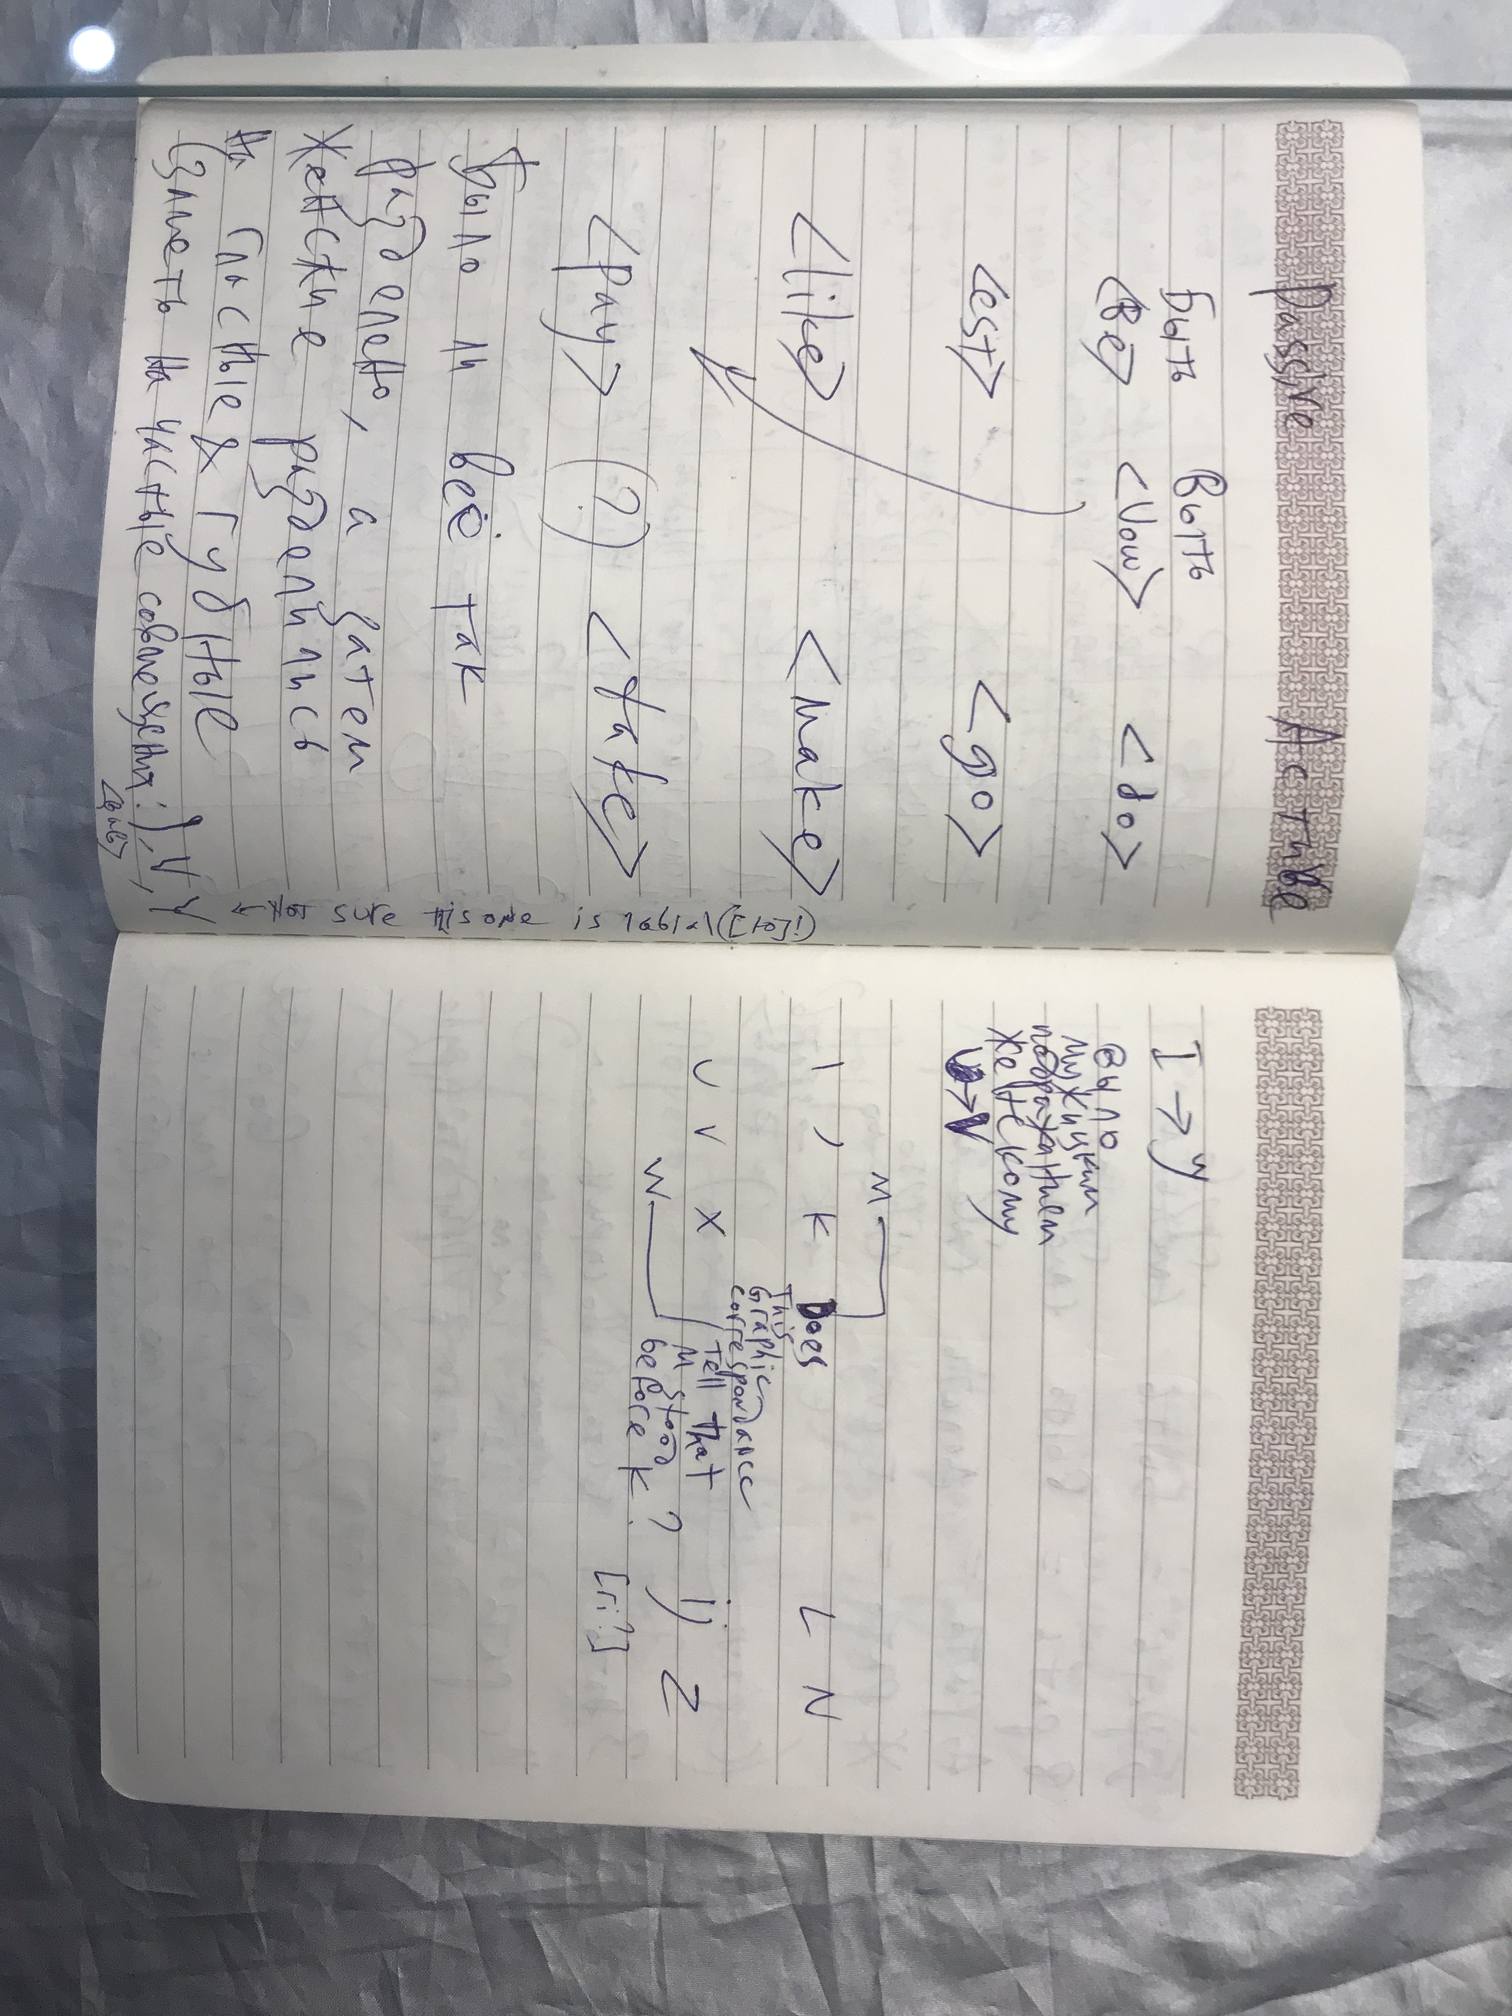 Passive Active
Быть Выть
<Be> <Vow> <do>
<est> <go>
<like> <make>
<pay> (?) <take>
Было ли всё так
разделено, а затем
женские разделились
на гласные & губные
(злметь на частые совмещения: J, V, Y
<вав>
← Not sure tisone is labial ([то]!)
I → y
было
мужицким
подражанием
женскому
→ V
M
I J K L N
U V X Z
W
Does
This
Graphic
correspondance
tell that
M stood
before K?
[ri?]